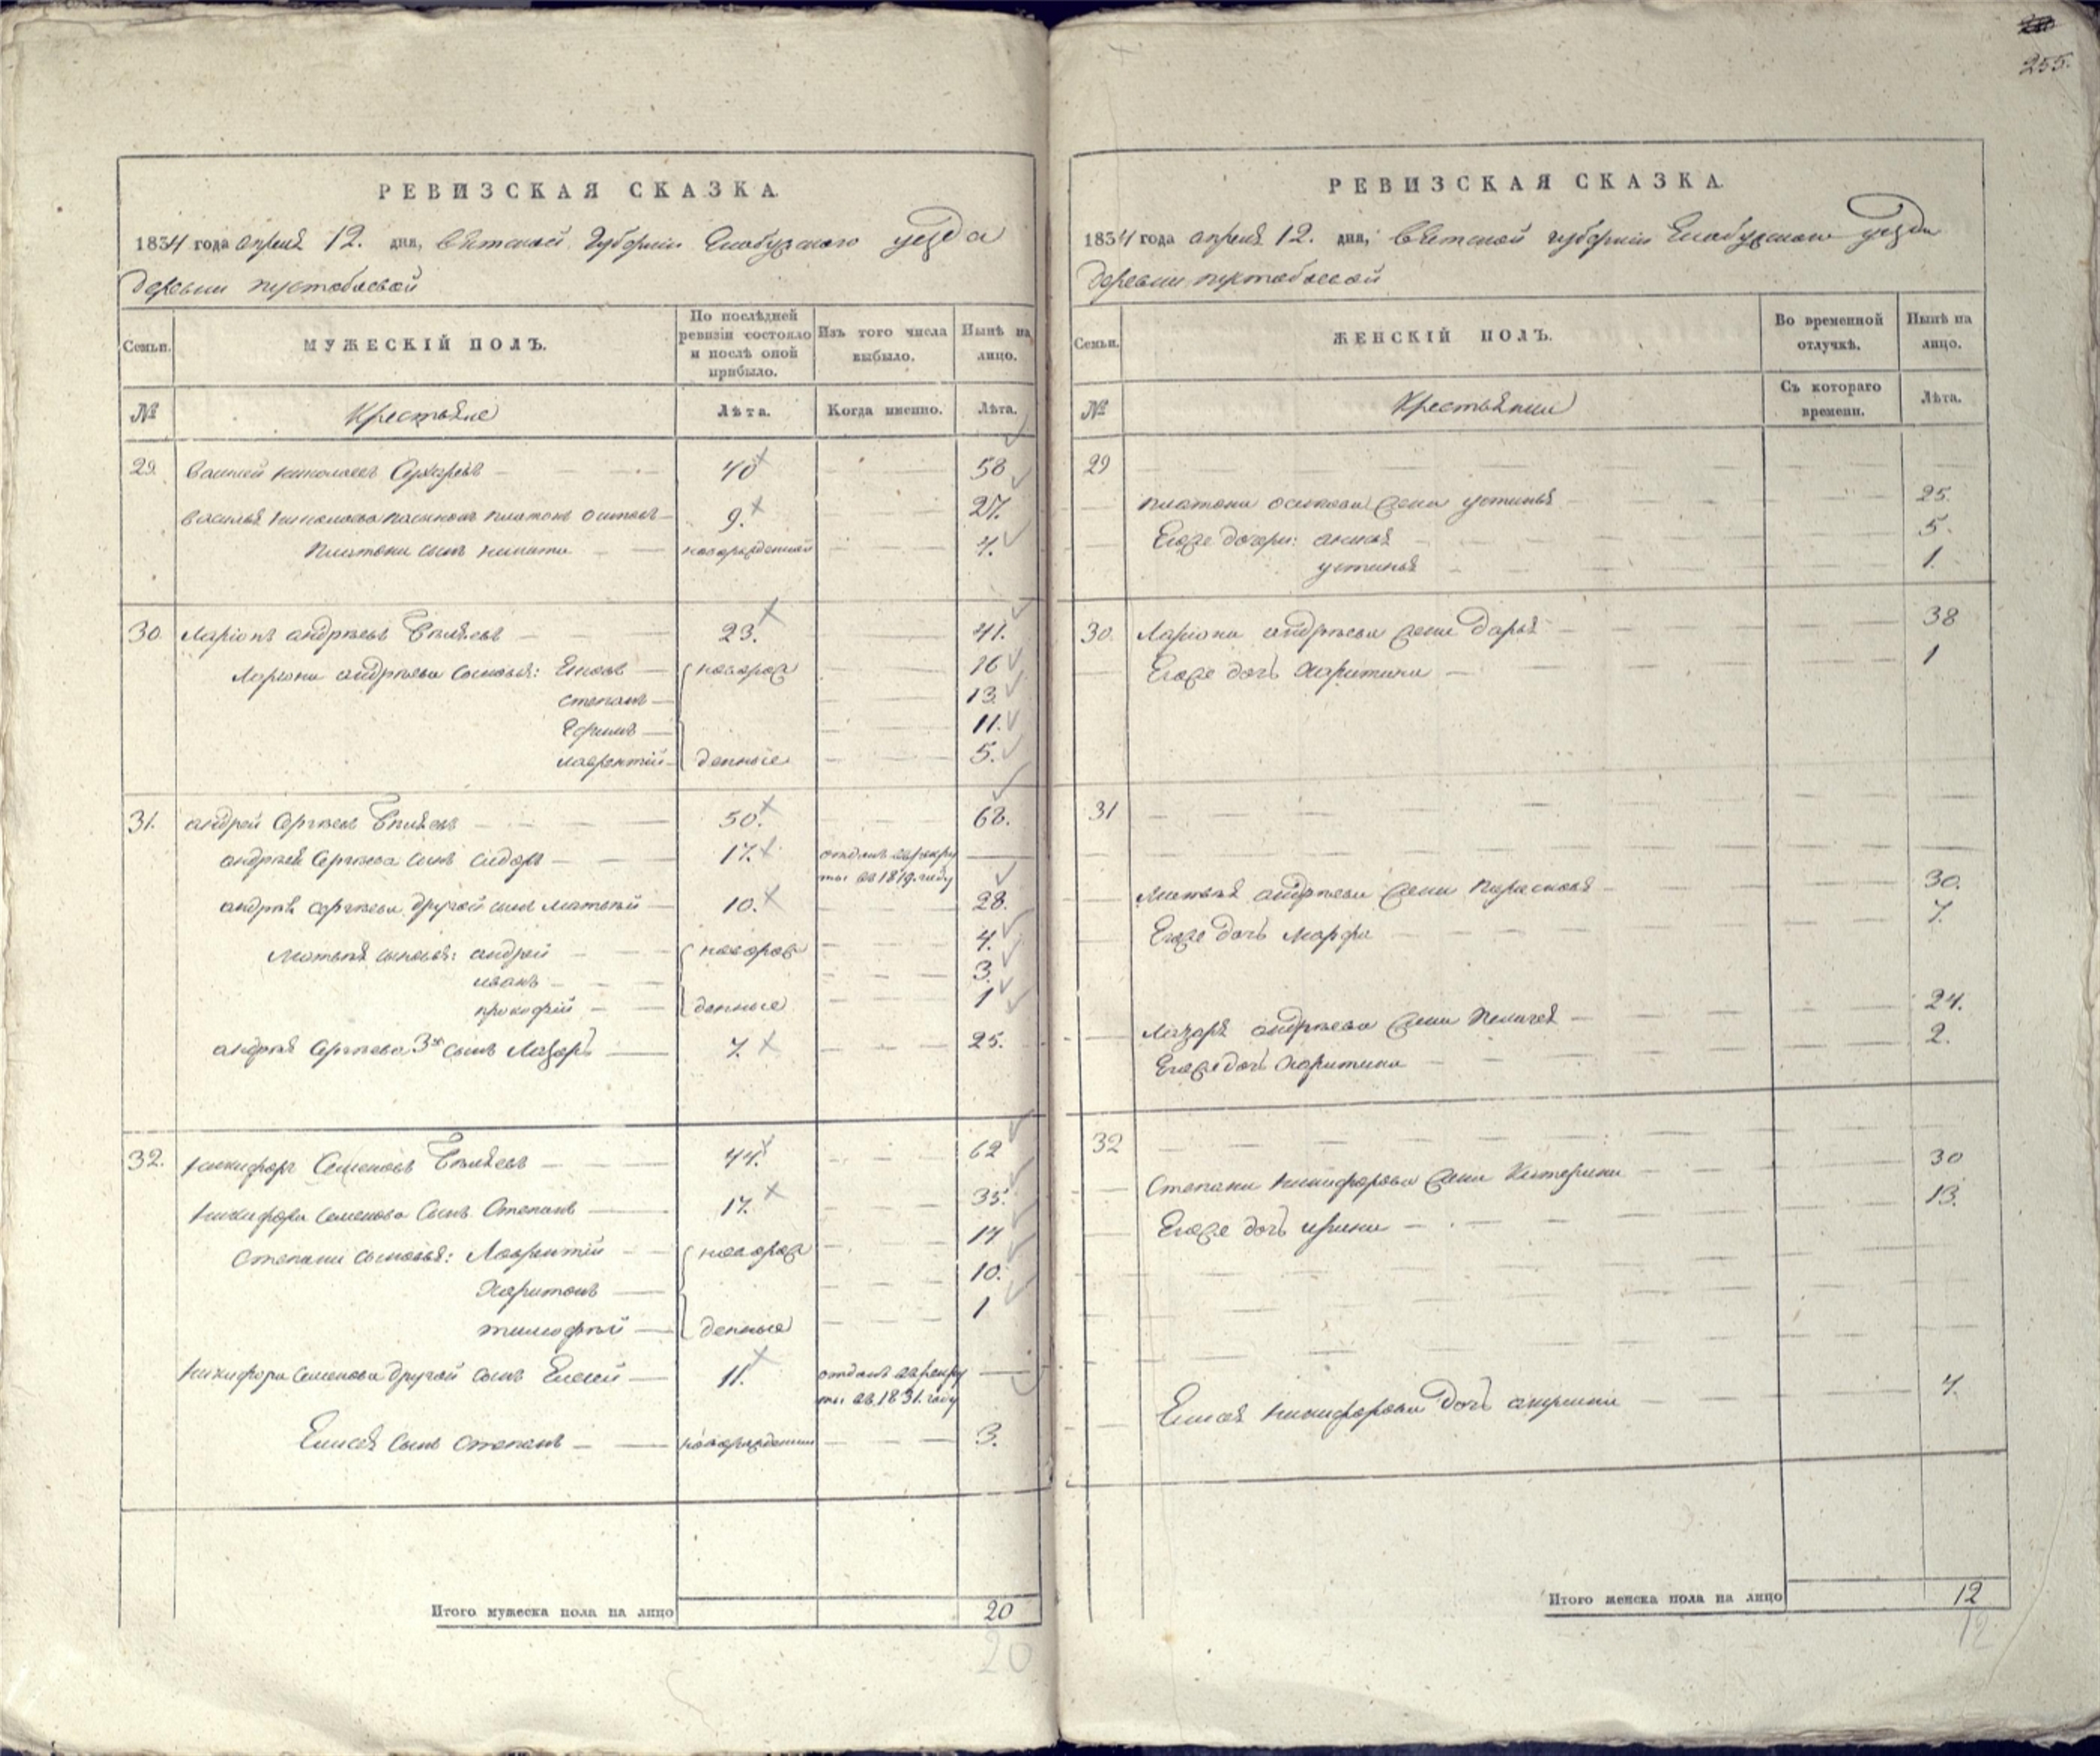 255.
РЕВИЗСКАЯ СКАЗКА.
1834 года апреля 12. дня, Вятской губернии Елабужского уезда
деревни пустобаевой
Семьи.
МУЖЕСКІЙ ПОЛЪ.
По послѣдней ревизіи состояло и послѣ оной прибыло.
Изъ того числа выбыло.
Нынѣ на лицо.
№
Крестьяне
Лѣта.
Когда именно.
Лѣта.
29. Василий николаевъ 40 58
василья николаева пасынокъ платонъ осиповъ 9. 27.
Платона сынъ никита новорожденный 4.
30. Ларіонъ андреевъ 23. 41.
Лариона андреева сыновья: новорож 16
степанъ 13.
Ефимъ 11.
лаврентий денные 5.
31. андрей Сергеевъ 50. 68.
андрея Сергеева сынъ сидоръ 17. отданъ в рекру
ты въ 1819. году
андрея сергеева другой сынъ матвей 10. 28.
матвея сыновья: андрей новорож 4.
иванъ 3.
прокофий денные 1
андрея Сергеева 3й сынъ Лазарь 7. 25.
32. никифоръ Семеновъ 44. 62
никифора семенова сынъ Степанъ 17. 35.
Степана сыновья: Лаврентий новорож 17
Харитонъ 10.
тимофей денные 1
никифора семенова другой сынъ Елисей 11. отданъ в рекру
ты въ 1831. году
Елисея сынъ степанъ новорожденный 3.
Итого мужеска пола на лицо 20
20
РЕВИЗСКАЯ СКАЗКА.
1834 года апреля 12. дня, Вятской губернии Елабужского уезда
деревни пустобаевой
Семьи.
ЖЕНСКІЙ ПОЛЪ.
Во временной отлучкѣ.
Нынѣ на лицо.
№
Крестьянки
Съ котораго времени.
Лѣта.
29
платона осипова жена устинья 25.
Егоже дочери: анна 5.
устинья 1.
30. Лариона андреева жена Дарья 38
Егоже дочь харитина 1
31
Матвея андреева жена парасковья 30.
Егоже дочь марфа 7.
Лазаря андреева жена пелагея 24.
Егоже дочь харитина 2.
32
Степана никифорова жена Катерина 30
Егоже дочь ирина 13.
Елисея никифорова дочь акулина 4.
Итого женска пола на лицо 12
12